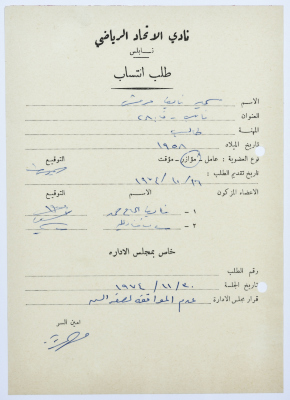 نادي الاتحاد الرياضي
نابلس
طلب انتساب
الاسم سمير نايف
العنوان نابلس
المهنة طالب
تاريخ الميلاد ١٩٥٨
نوع العضوية : عامل - مؤازر - مؤقت التوقيع
تاريخ تقديم الطلب : ١٩٧٤/١٠/٢٦
الاعضاء المزكون الاسم التوقيع
١ -
٢ -
خاص بمجلس الاداره
رقم الطلب
تاريخ الجلسة ١٩٧٤/١١/٣٠
قرار مجلس الادارة عدم الموافقة لصغر السن
امين السر